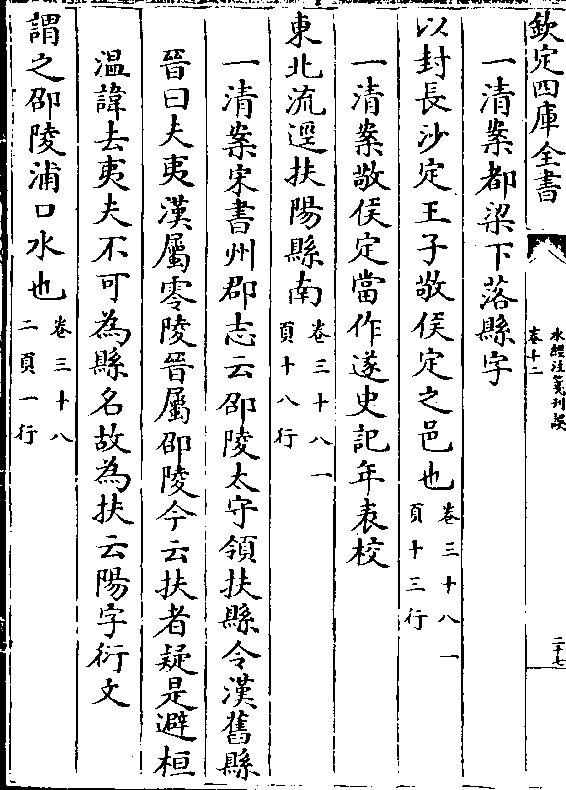 欽定四庫全書
水經注箋刊誤
卷十二
二十七
一清案都梁下落縣字
以封長沙定王子敬侯定之邑也卷三十八一
頁十三行
一清案敬侯定當作遂史記年表校
東北流逕扶陽縣南卷三十八一
頁十八行
一清案宋書州郡志云邵陵太守領扶縣令漢舊縣
晉曰夫夷漢屬零陵晉屬邵陵今云扶者疑是避桓
温諱去夷夫不可為縣名故為扶云陽字衍文
謂之邵陵浦口水也卷三十八
二頁一行